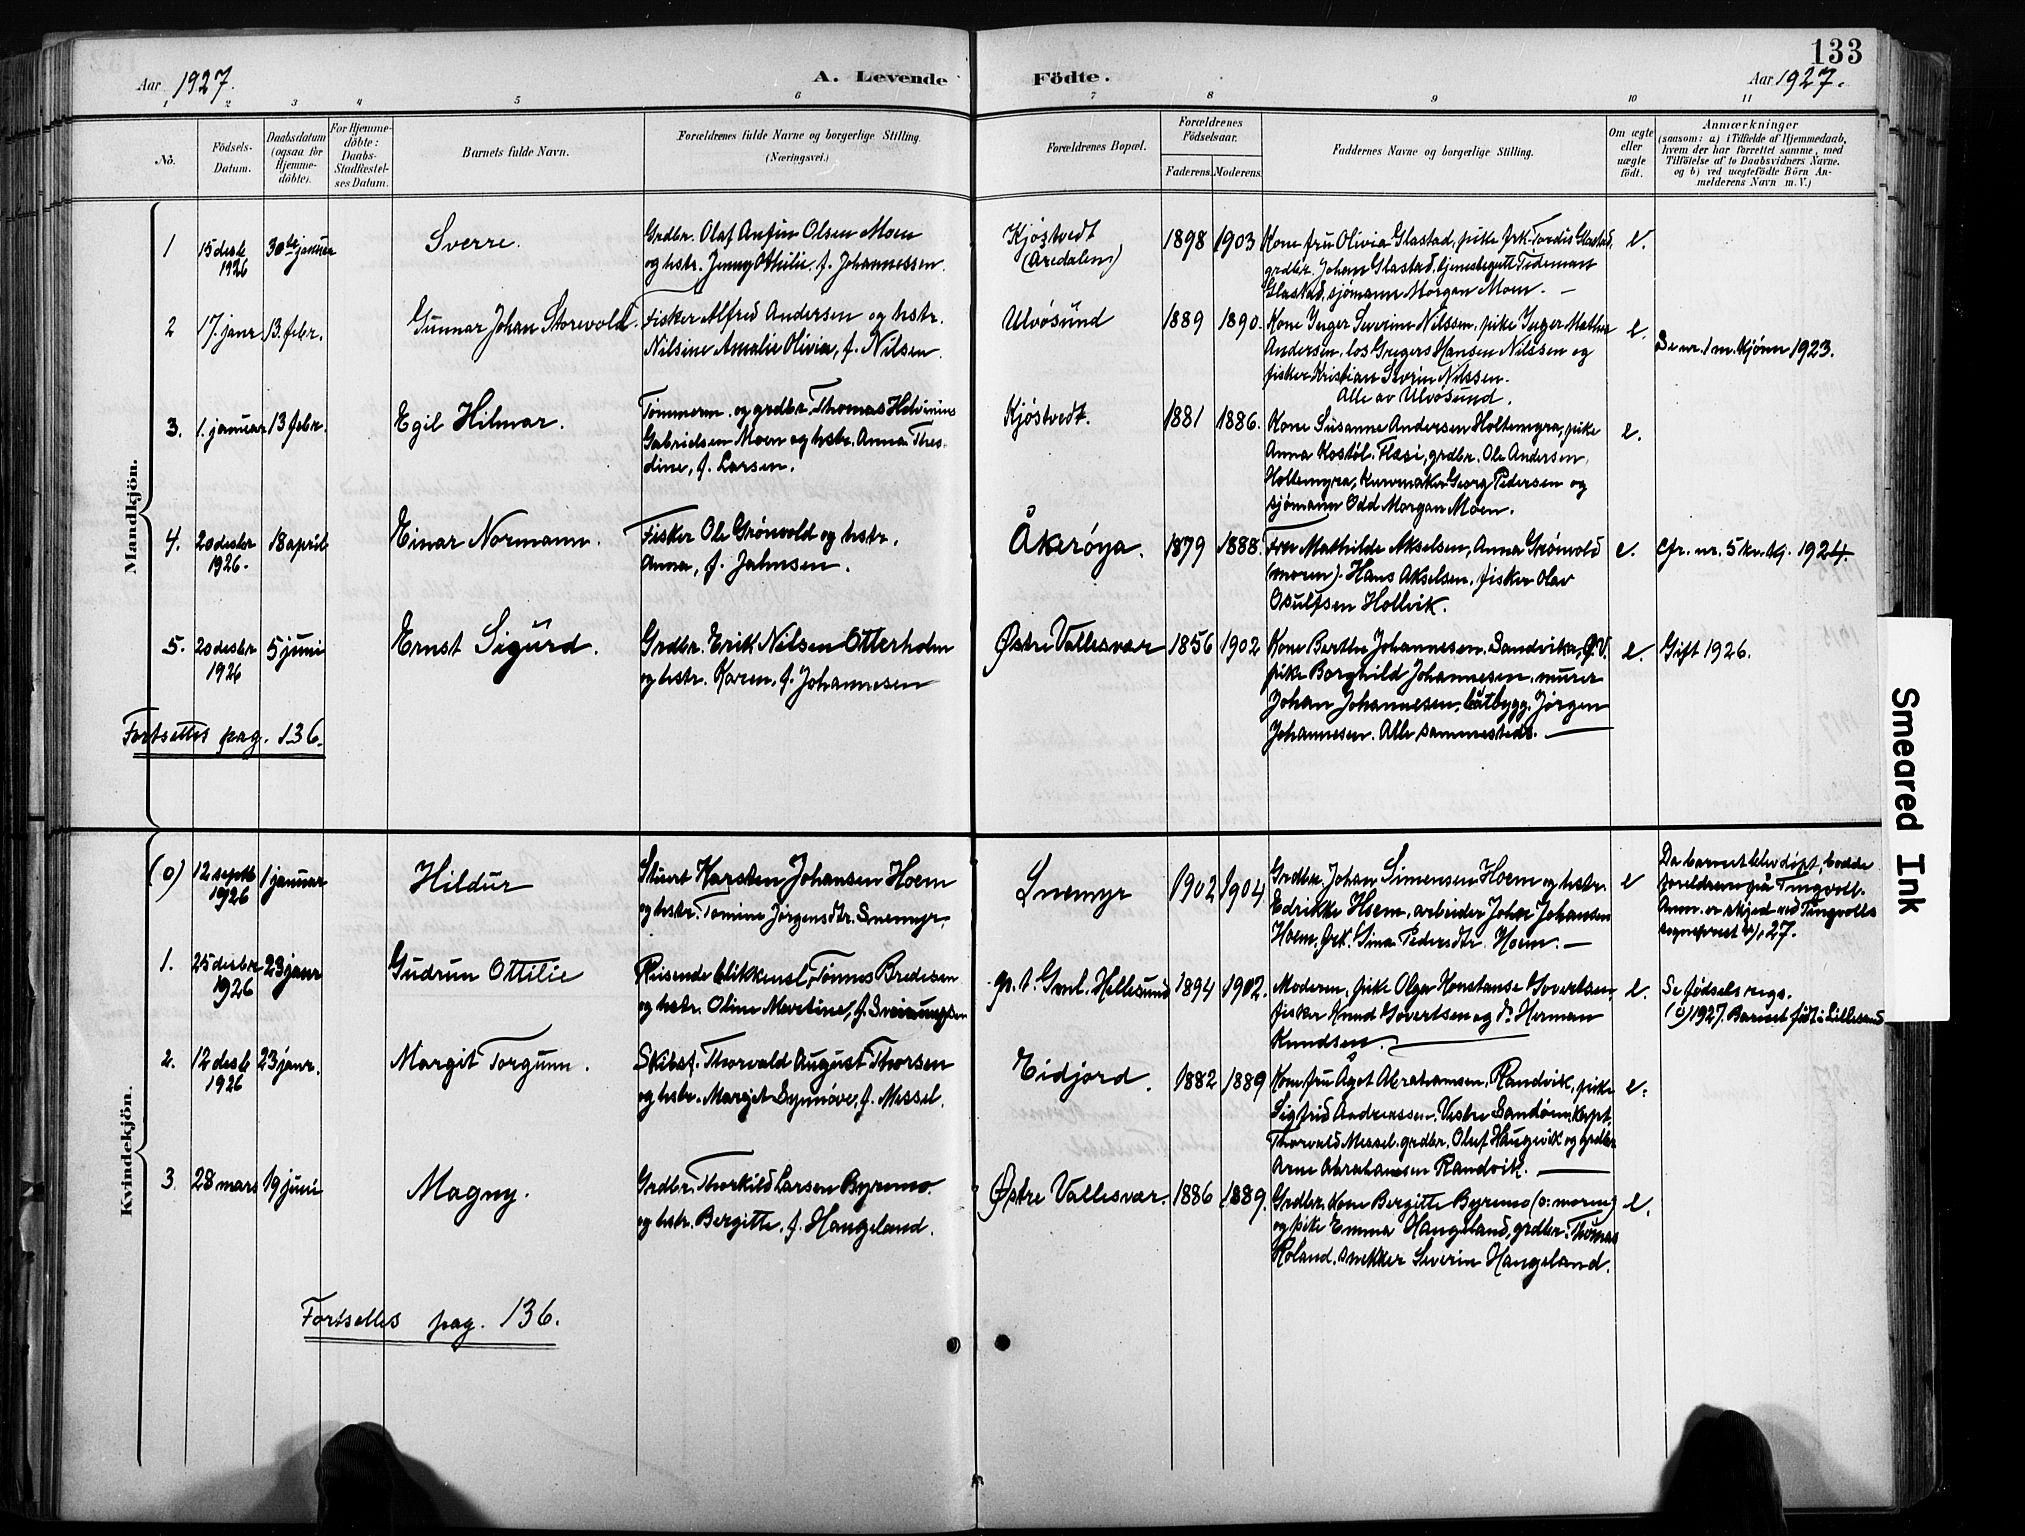 133
Aar 1927.
A. Levende Födte.
Aar 1927.
1 2 3 4 5 6 7 8 9 10 11
No.
Födsels-
Datum.
Daabsdatum
(ogsaa for
Hjemme-
döbte).
For Hjemme-
döbte:
Daabs-
Stadfæstel-
ses Datum.
Barnets fulde Navn.
Forældrenes fulde Navne og borgerlige Stilling.
(Næringsvei.)
Forældrenes Bopæl.
Forældrenes
Födselsaar.
Faderens. Moderens.
Faddernes Navne og borgerlige Stilling.
Om ægte
eller
uægte
födt.
Anmærkninger
(saasom: a) i Tilfælde af Hjemmedaab,
hvem der har forrettet samme, med
Tilföielse af to Daabsvidners Navne.
og b) ved uægtefödte Börn An-
melderens Navn m. V.)
Mandkjön.
1
15 desbr
1926
30te januar
Sverre.
Grdbr. Olaf Anfin Olsen Moen
og hstr. Jenny Othilie, f. Johannessen.
Kjøstvedt
(Aredalen)
1898 1903
Kone fru Olivia Glastad, pike frk. Tordis Glastad,
grdbr. Johan Glastad, tjenestegutt Tideman
Glastad, sjømann Morgan Moen. —
e.
2
17. janr
13. febr.
Gunnar Johan Storevold.
Fisker Alfred Andersen og hstr.
Nilsine Amalie Olivia, f. Nilsen.
Ulvøsund
1889 1890.
Kone Inger Severine Nilssen, pike Inger Mathea
Andersen, los Gregers Hansen Nilssen og
fisker Kristian Severin Nilssen.
Alle av Ulvøsund.
e.
Se nr. 1 m. kjønn 1923.
3.
1. januar
13 febr.
Egil Hilmar.
Tømmerm. og grdbr. Thomas Helvinius
Gabrielsen Moen og hstr. Anna Thes-
dine, f. Larsen.
Kjøstvedt.
1881 1886.
Kone Susanne Andersen Holtemyra, pike
Anna Kostøl. Flæsi, grdbr. Ole Andersen,
Holtemyra, kurvmaker Georg Pedersen og
sjømann Odd Morgan Moen.
e.
4.
20 desbr
1926.
18 april
Einar Normann.
Fisker Ole Grønvold og hstr.
Anna, f. Jahnsen.
Åkerøya.
1879 1888.
Fru Mathilde Akselsen, Anna Grønvold
(moren). Hans Akselsen, fisker Olav
Osulfsen Hollvik.
e.
Cfr. nr. 5 kv. kj. 1924.
5.
20 desbr
1926
5 juni
Ernst Sigurd.
Grdbr. Erik Nilsen Otterholm
og hstr. Karen, f. Johannesen
Østre Vallesvær
1856 1902
Kone Berthe Johannesen, Sandvika, Ø.V.
pike Borghild Johannesen, murer
Johan Johannesen, båtbygg. Jørgen
Johannesen. Alle sammesteds. —
e.
Gift 1926.
Fortsettes pag. 136.
Kvindekjön.
(0)
12 septb
1926
1 januar
Hildur
Stuert Karsten Johansen Hoem
og hstr. Tomine Jørgensdtr. Snemyr.
Snemyr
1902 1904
Grdbr. Johan Simensen Hoem og hstr.
Edrikke Hoem, arbeider John Johansen
Hoem, frk. Gina Pedersdtr. Hoem. —
e
Da barnet blev døpt, bodde
foreldrene på Tingvoll.
Anm. er skjed ved Tingvolls
sogneprest 27.
1.
25 desbr
1926
23 janr
Gudrun Ottilie
Reisende blikkensl. Tønnes Bredesen
og hstr. Oline Martine, f. Sveinungsen
gr. t. Gml. Hellesund
1894 1902.
Moderen, pike Olga Konstanse Govertsen,
fisker Knud Govertsen og do. Herman
Knudsen. —
e.
Se fødselsregs.
(0) 1927. Barnet født i Lillesand
2.
12 desb
1926
23 janr.
Margit Torgunn.
Skibsf. Thorvald August Thorsen
og hstr. Margit Synnøve, f. Messel.
Eidjord.
1882 1889
Kone fru Ågot Abrahamsen, Randvik, pike
Sigfrid Andreassen, Vestre Sandøen, kapt.
Thorvald Messel. grdbr. Oluf Haugvik og grdbr.
Arne Abrahamsen Randvik. —
e.
3
28 mars
19 juni
Magny.
Grdbr. Thorkild Larsen Byremo.
og hstr. Bergitte, f. Haugeland.
Østre Vallesvær.
1886 1889.
Grdbr. kone Bergitte Byremo (o: moren)
og pike Emma Haugeland, grdbr. Thomas
Roland, snekker Severin Haugeland.
e.
Fortsettes pag. 136.
Smeared Ink